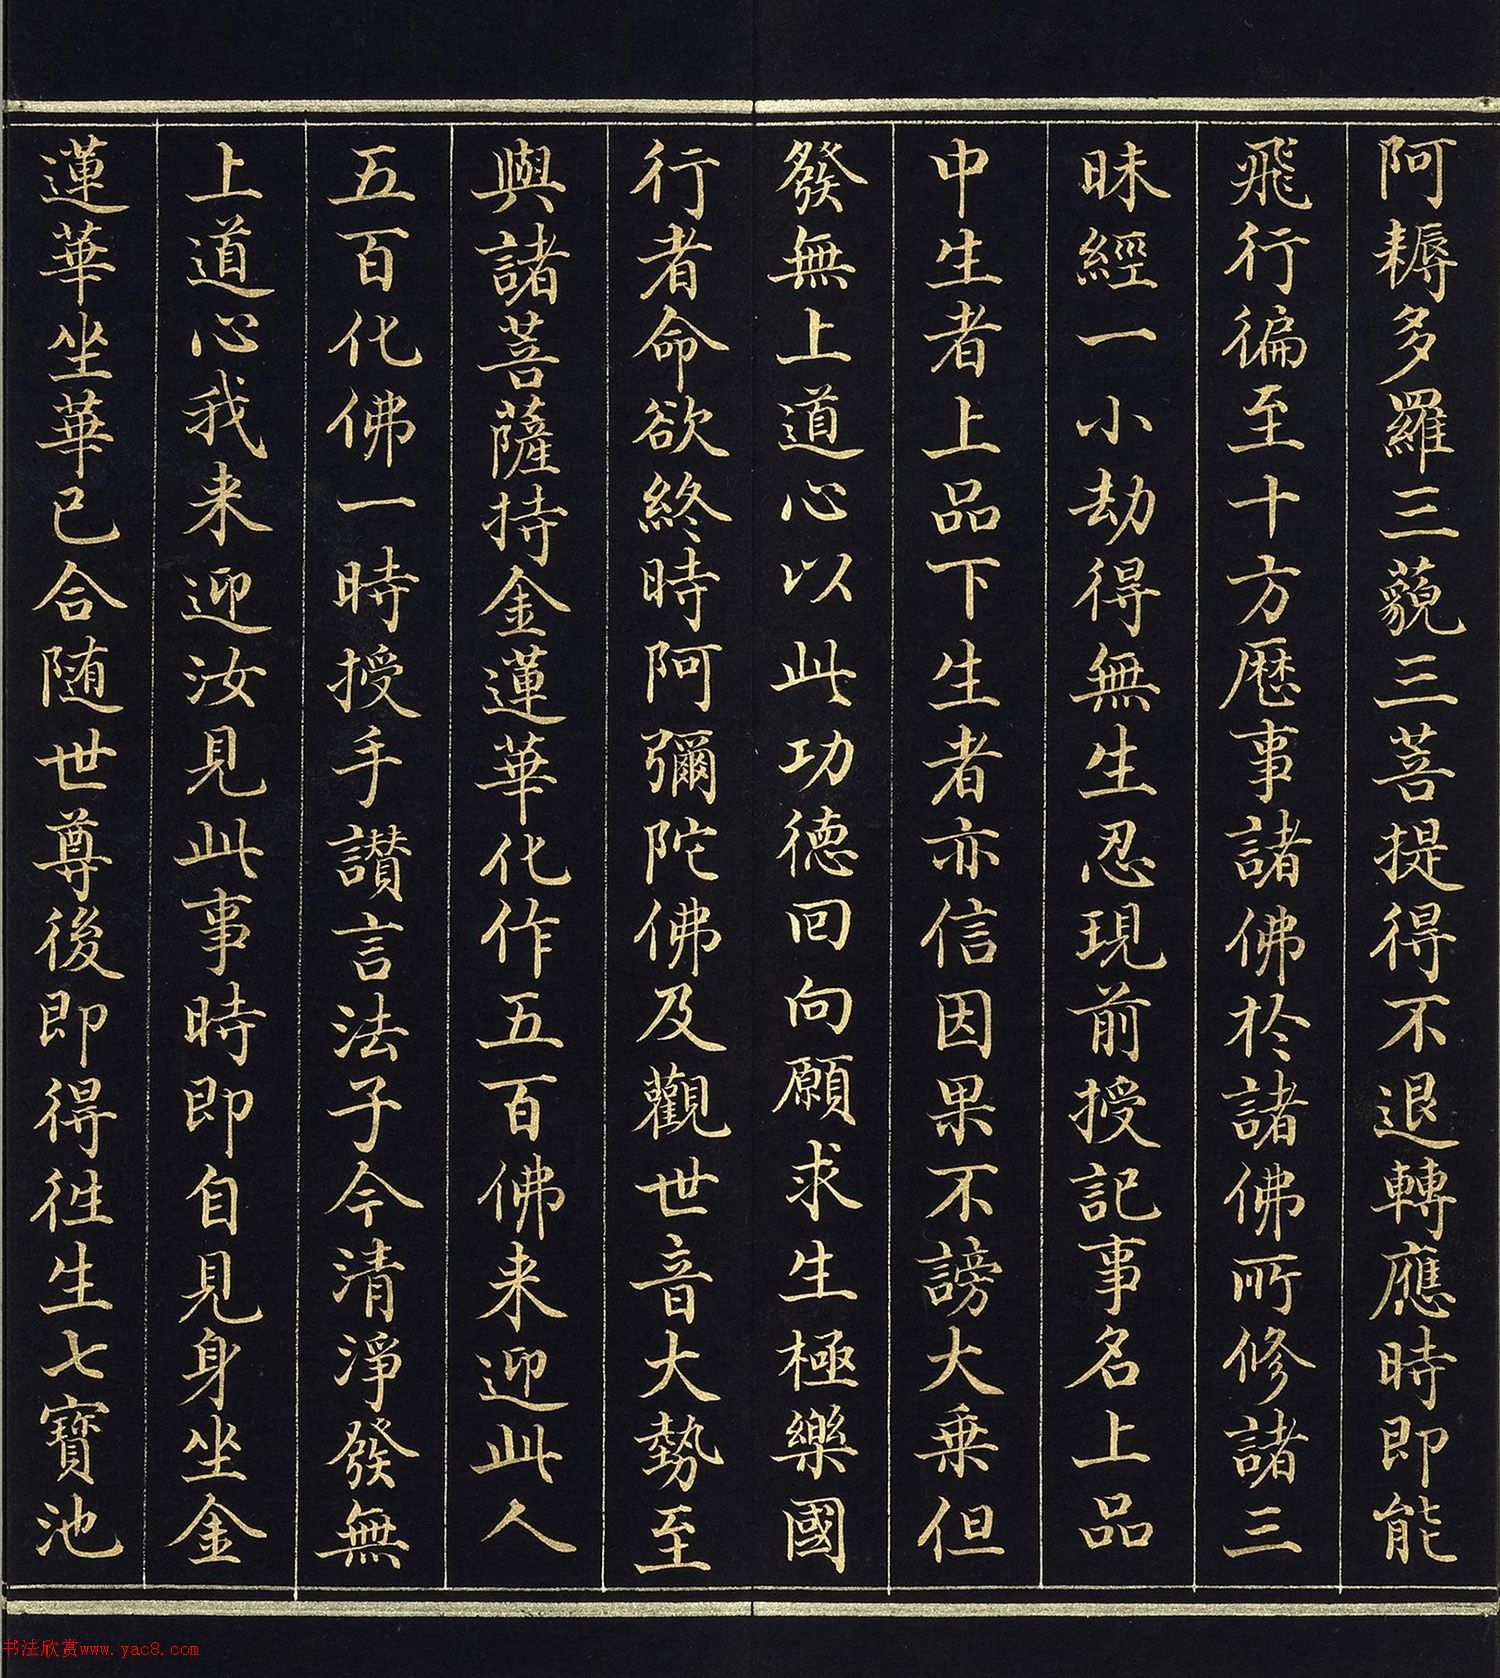 阿耨多羅三藐三菩提得不退轉應時即能
飛行徧至十方歷事諸佛於諸佛所修諸三
昧經一小劫得無生忍現前授記事名上品
中生者上品下生者亦信因果不謗大乗但
發無上道心以此功德回向願求生極樂國
行者命欲終時阿彌陀佛及觀世音大勢至
與諸菩薩持金蓮華化作五百佛来迎此人
五百化佛一時授手讃言法子今清淨發無
上道心我来迎汝見此事時即自見身坐金
蓮華坐華已合随世尊後即得徃生七寶池
书法欣赏www.yac8.com